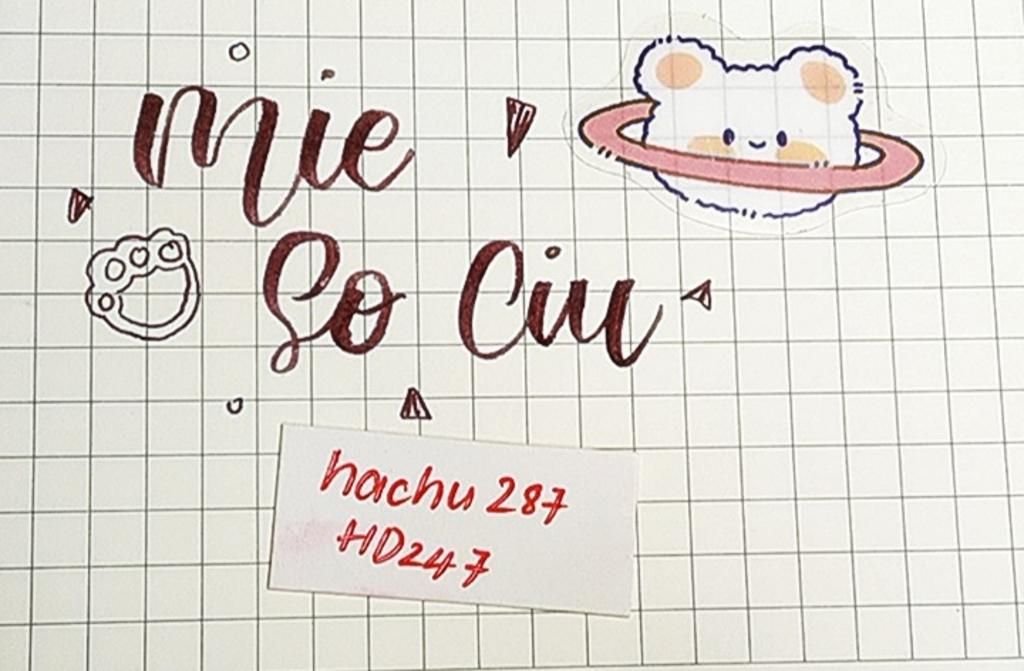 mie
So Ciu
hachu 287
HD247